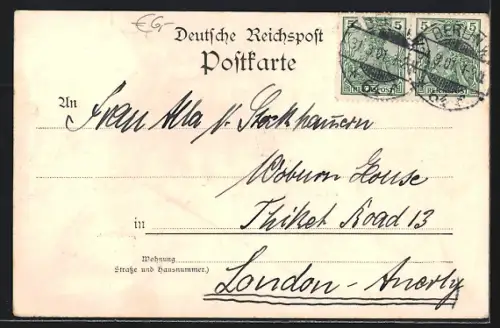 €6.-
Deutsche Reichspost
Postkarte
5 5
BERLIN
An Frau Alla v. Stockhausern
Woburn House
in Thiket Road 13
Wohnung
(Straße und Hausnummer.)
London-Anerly